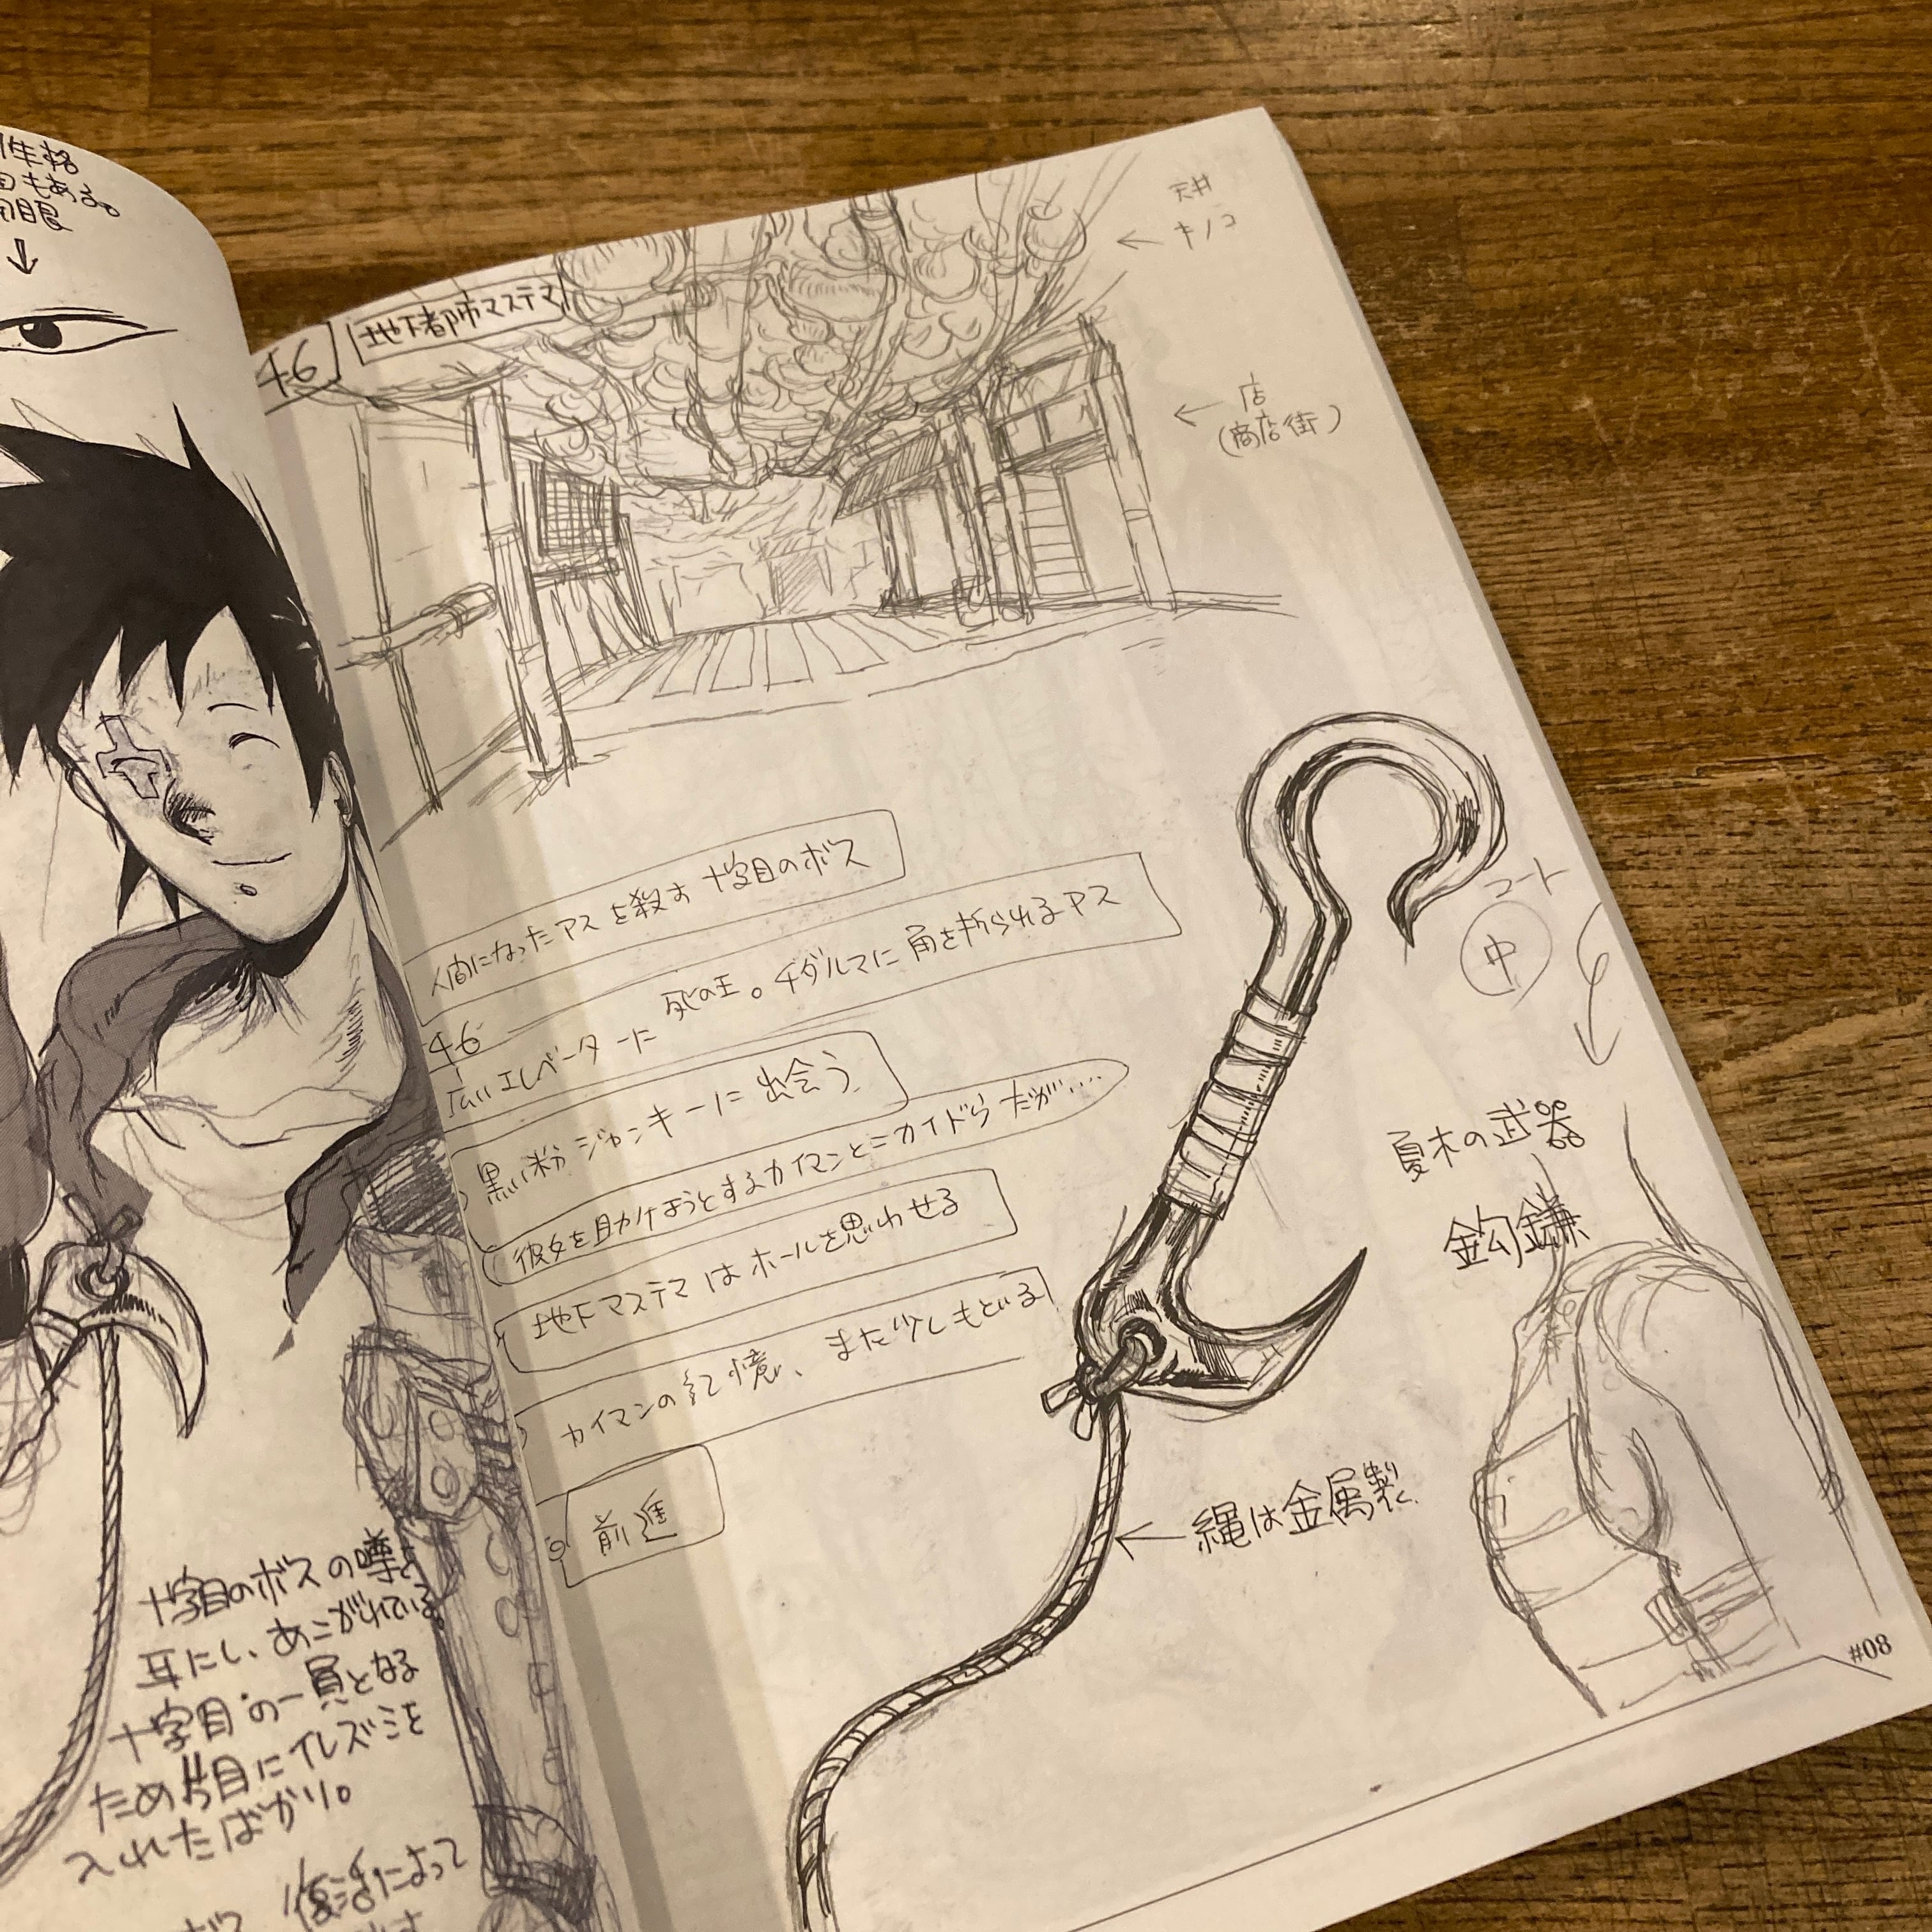 性格
もある。
眼
十字目のボスの噂を
耳にし、あこがれている。
十字目の一員となる
ため片目にイレズミを
入れたばかり。
復活によって
46
地下都市マステマ
天井
キノコ
店
(商店街)
人間になったアスを殺す十字目のボス
死の王。チダルマに角を折られるアス
46
広いエレベーターに
黒い粉ジャンキーに出会う
彼女を助けようとするカイマンとニカイドウ だが‥‥
地下マステマはホールを思わせる
カイマンの記憶、また少しもどる
前進
コート
中
夏木の武器
鉤鎌
縄は金属製
#08